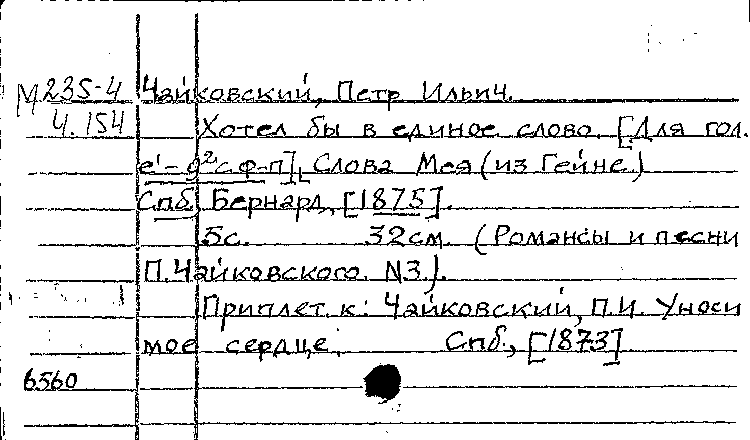 М 235-4 Чайковский, Петр Ильич.
Ч.154 Хотел бы в единое слово. [Для гол.
e¹-g² с ф-п], Слова Мея (из Гейне.)
Спб. Бернард, [1875].
5с. 32см. (Романсы и песни
П.Чайковского. N3.).
Приплет. к: Чайковский, П.И. Уноси
мое сердце. Спб., [1873]
6560